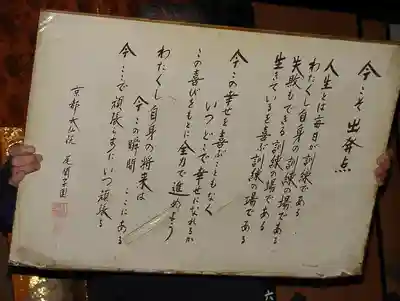 今こそ出発点
人生とは毎日が訓練である
わたくし自身の訓練の場である
失敗もできる訓練の場である
生きているを喜ぶ訓練の場である
今この幸せを喜ぶこともなく
いつどこで幸せになれるか
この喜びをもとに全力で進めよう
わたくし自身の将来は
今この瞬間ここにある
今ここで頑張らずにいつ頑張る
京都大仙院 尾関宗園
六